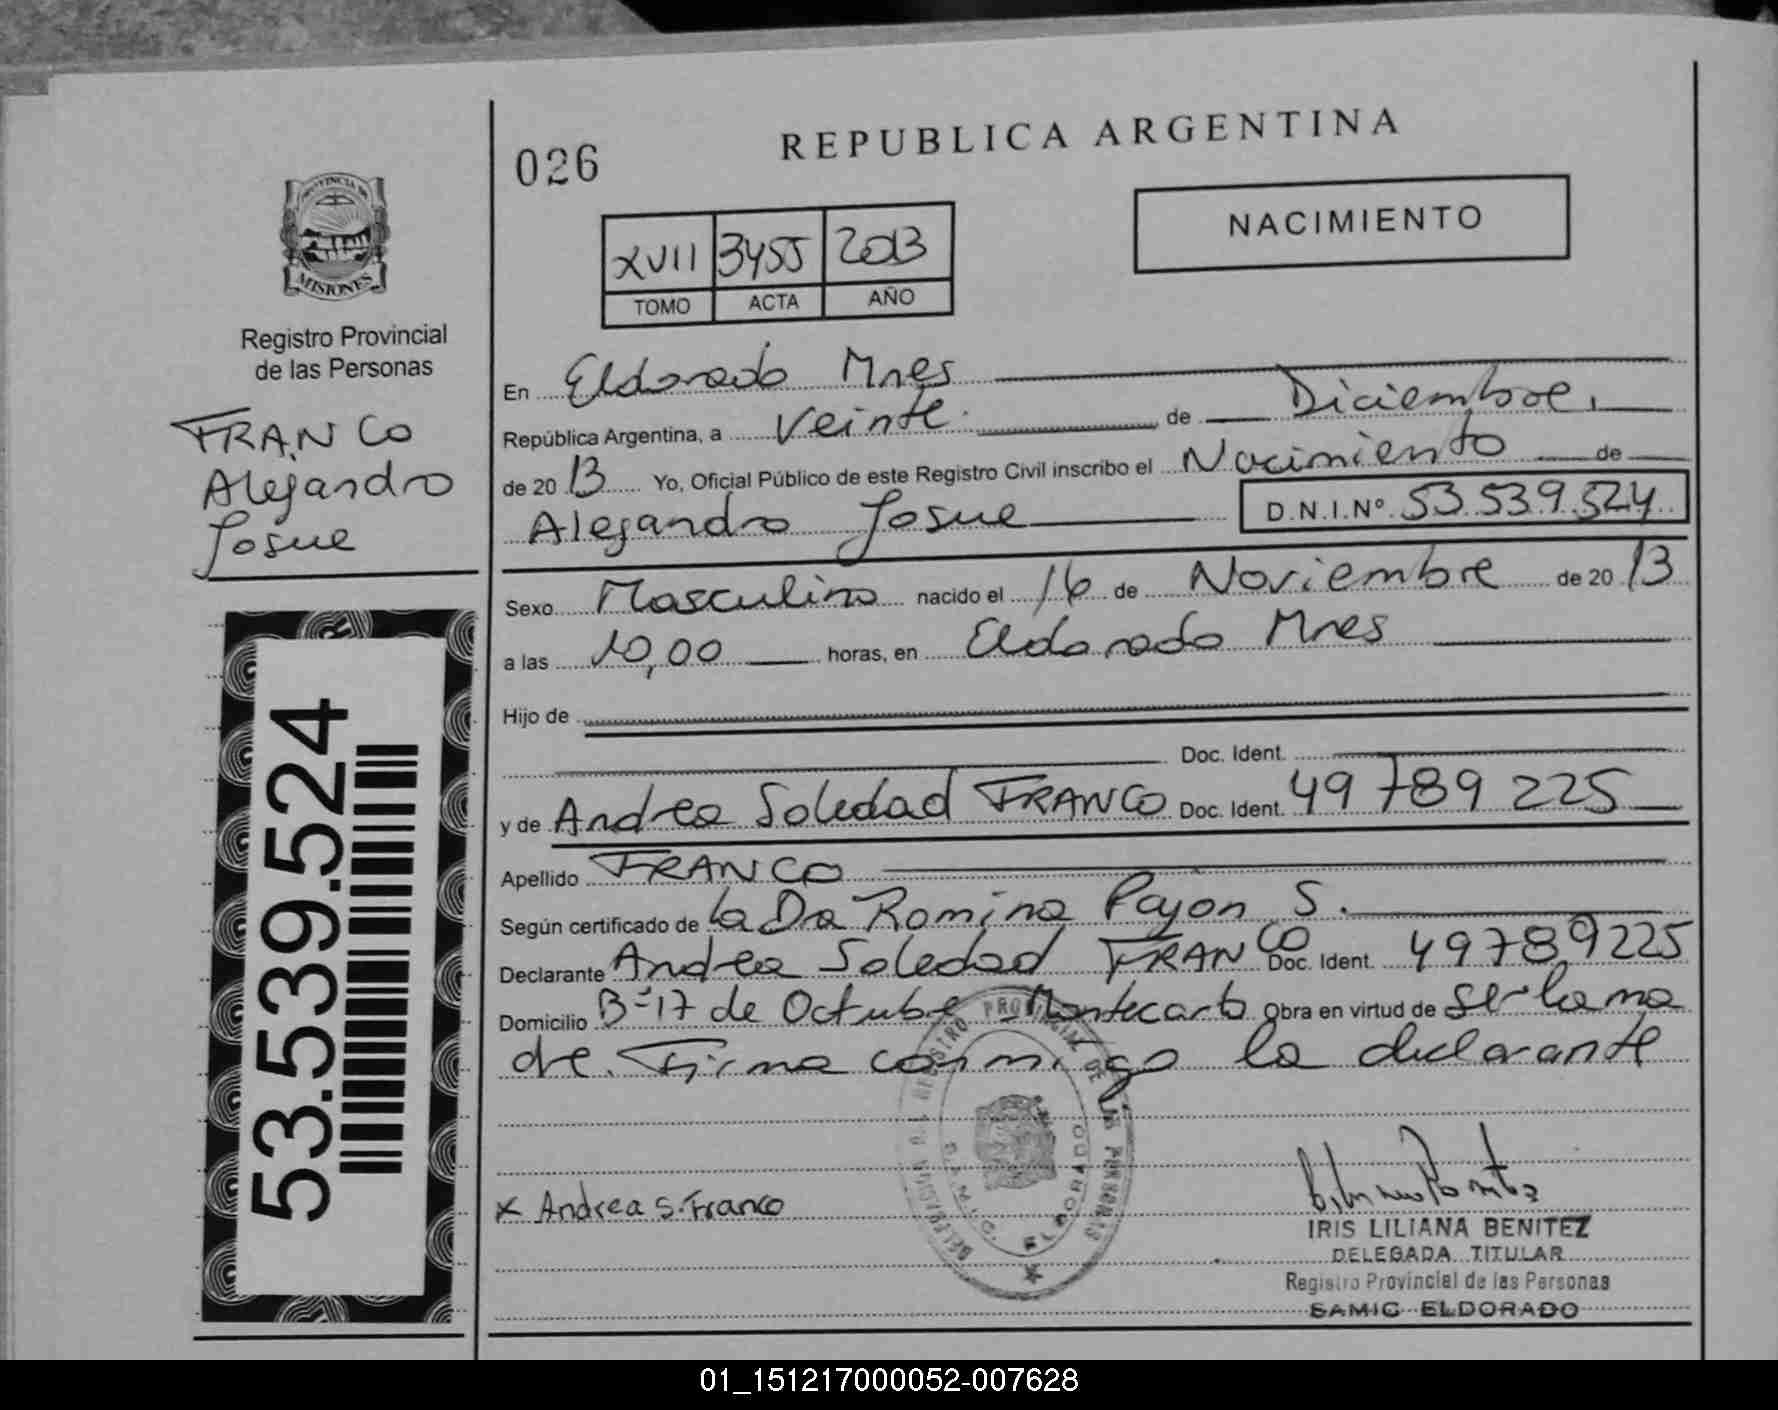 026
REPUBLICA ARGENTINA
PROVINCIA DE
MISIONES
Registro Provincial
de las Personas
FRANCO
Alejandro
Josue
53.539.524
XVII 3455 2013
TOMO ACTA AÑO
NACIMIENTO
En Eldorado Mnes
República Argentina, a Veinte de Diciembre
de 20 13 Yo, Oficial Público de este Registro Civil inscribo el Nacimiento de
Alejandro Josue D.N.I.Nº 53.539.524
Sexo Masculino nacido el 16 de Noviembre de 20 13
a las 10,00 horas, en Eldorado Mnes
Hijo de
Doc. Ident.
y de Andrea Soledad FRANCO Doc. Ident. 49789225
Apellido FRANCO
Según certificado de la Dra Romina Payon S.
Declarante Andrea Soledad FRANCO Doc. Ident. 49789225
Domicilio B-17 de Octubre - Montecarlo Obra en virtud de ser la ma
dre. Firma conmigo la declarante
REGISTRO PROVINCIAL DE LAS PERSONAS
ELDORADO
x Andrea S. Franco
IRIS LILIANA BENITEZ
DELEGADA TITULAR
Registro Provincial de las Personas
SAMIC ELDORADO
01_151217000052-007628